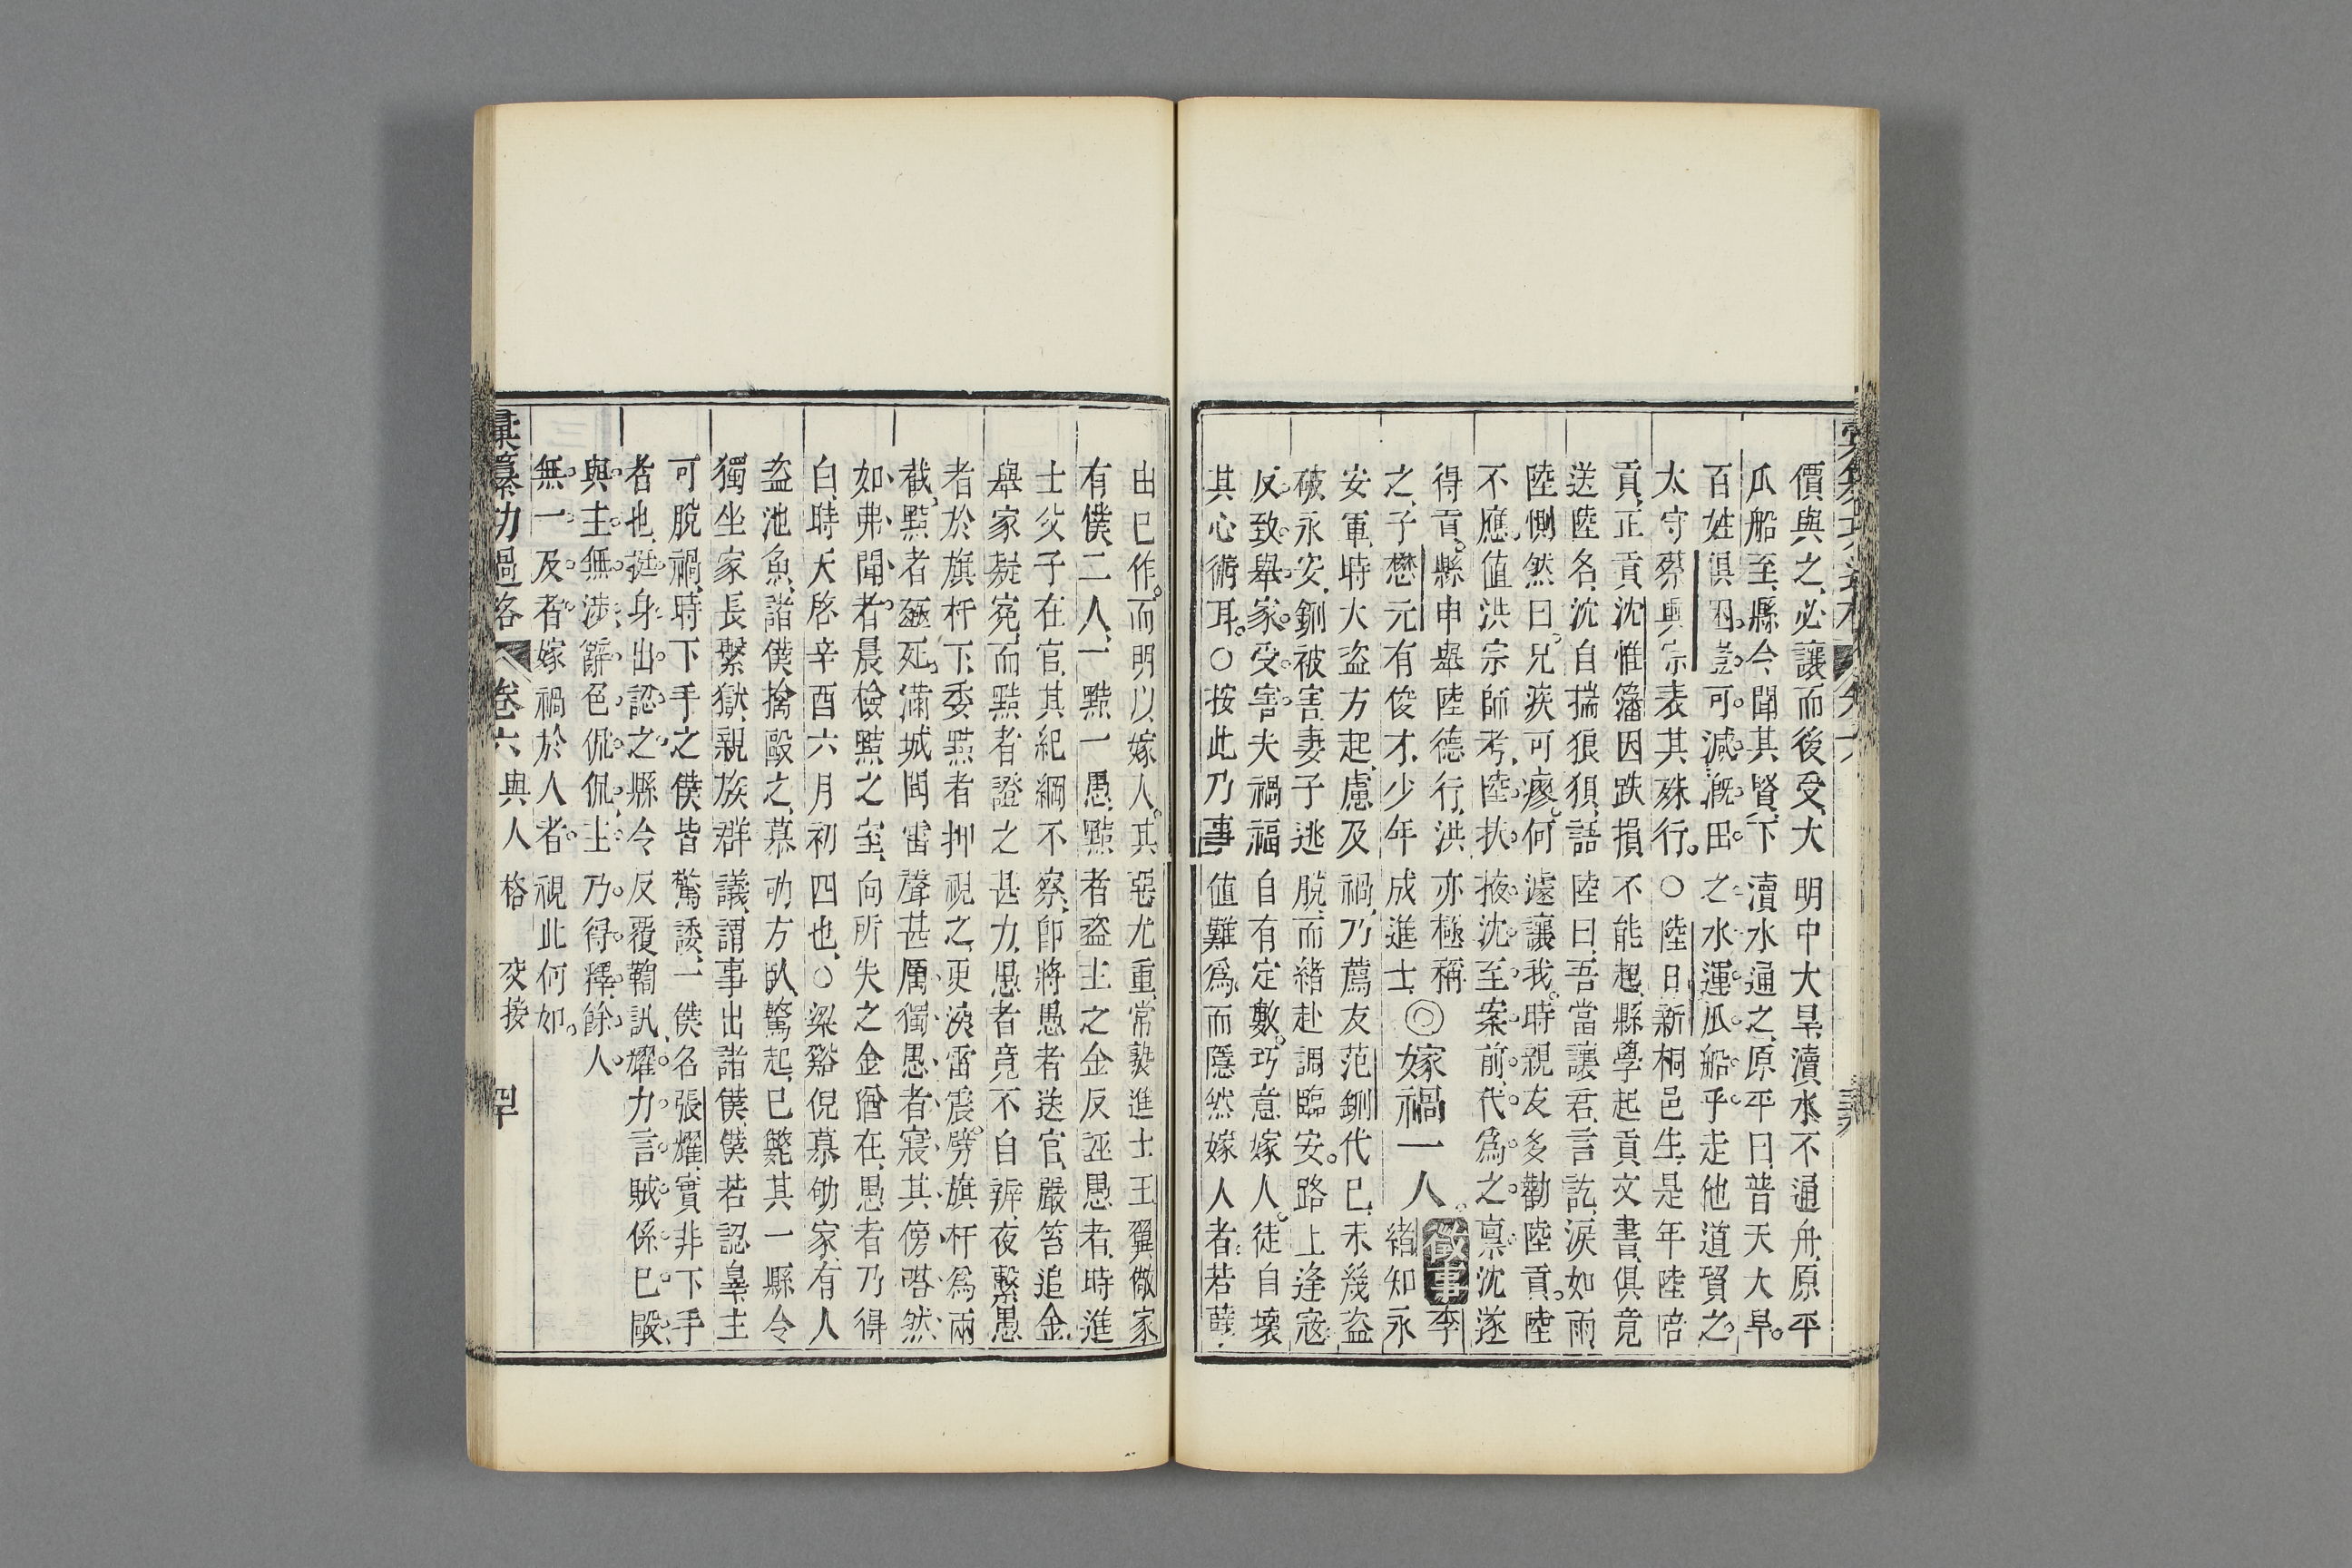 價與之必讓而後受大明中大旱瀆水不通舟原平
瓜船至縣令聞其賢下瀆水通之原平曰普天大旱
百姓俱困豈可減溉田之水運瓜船乎走他道貿之
太守蔡興宗表其殊行○陸日新桐邑生是年陸陪
貢正貢沈惟籓因跌損不能起縣學起貢文書俱竟
送陸名沈自揣狼狽語陸曰吾當讓君言訖淚如雨
陸惻然曰兄疾可瘳何遽讓我時親友多勸陸貢陸
不應值洪宗師考陸扶掖沈至案前代為之稟沈遂
得貢縣申舉陸德行洪亦極稱◎嫁禍一人徵事李
之子懋元有俊才少年成進士緒知永
安軍時大盜方起慮及禍乃薦友范鉶代已未幾盜
破永安鉶被害妻子逃脫而緒赴調臨安路上逢寇
反致舉家受害夫禍福自有定數巧意嫁人徒自壞
其心術耳○按此乃事值難為而隱然嫁人者若孽
由已作而明以嫁人其惡尤重常熟進士王翼儆家
有僕二人一黠一愚黠者盜主之金反誣愚者時進
士父子在官其紀綱不察即將愚者送官嚴笞追金
舉家疑冤而黠者證之甚力愚者竟不自辨夜繫愚
者於旗杆下委黠者押視之更深雷震劈旗杆為兩
截黠者殛死滿城聞雷聲甚厲獨愚者寢其傍嗒然
如弗聞者晨檢黠之室向所失之金猶在愚者乃得
白時天啓辛酉六月初四也○梁谿倪慕劬家有人
盜池魚諸僕擒毆之慕劬方臥驚起已斃其一縣令
獨坐家長繫獄親族群議謂事出諸僕僕若認辠主
可脫禍時下手之僕皆驚諉一僕名張耀實非下手
者也挺身出認之縣令反覆鞫訊耀力言賊係已毆
與主無涉辭色侃侃主乃得釋餘人
無一及者嫁禍於人者視此何如
彙纂功過格 卷六 與人格 交接 四十